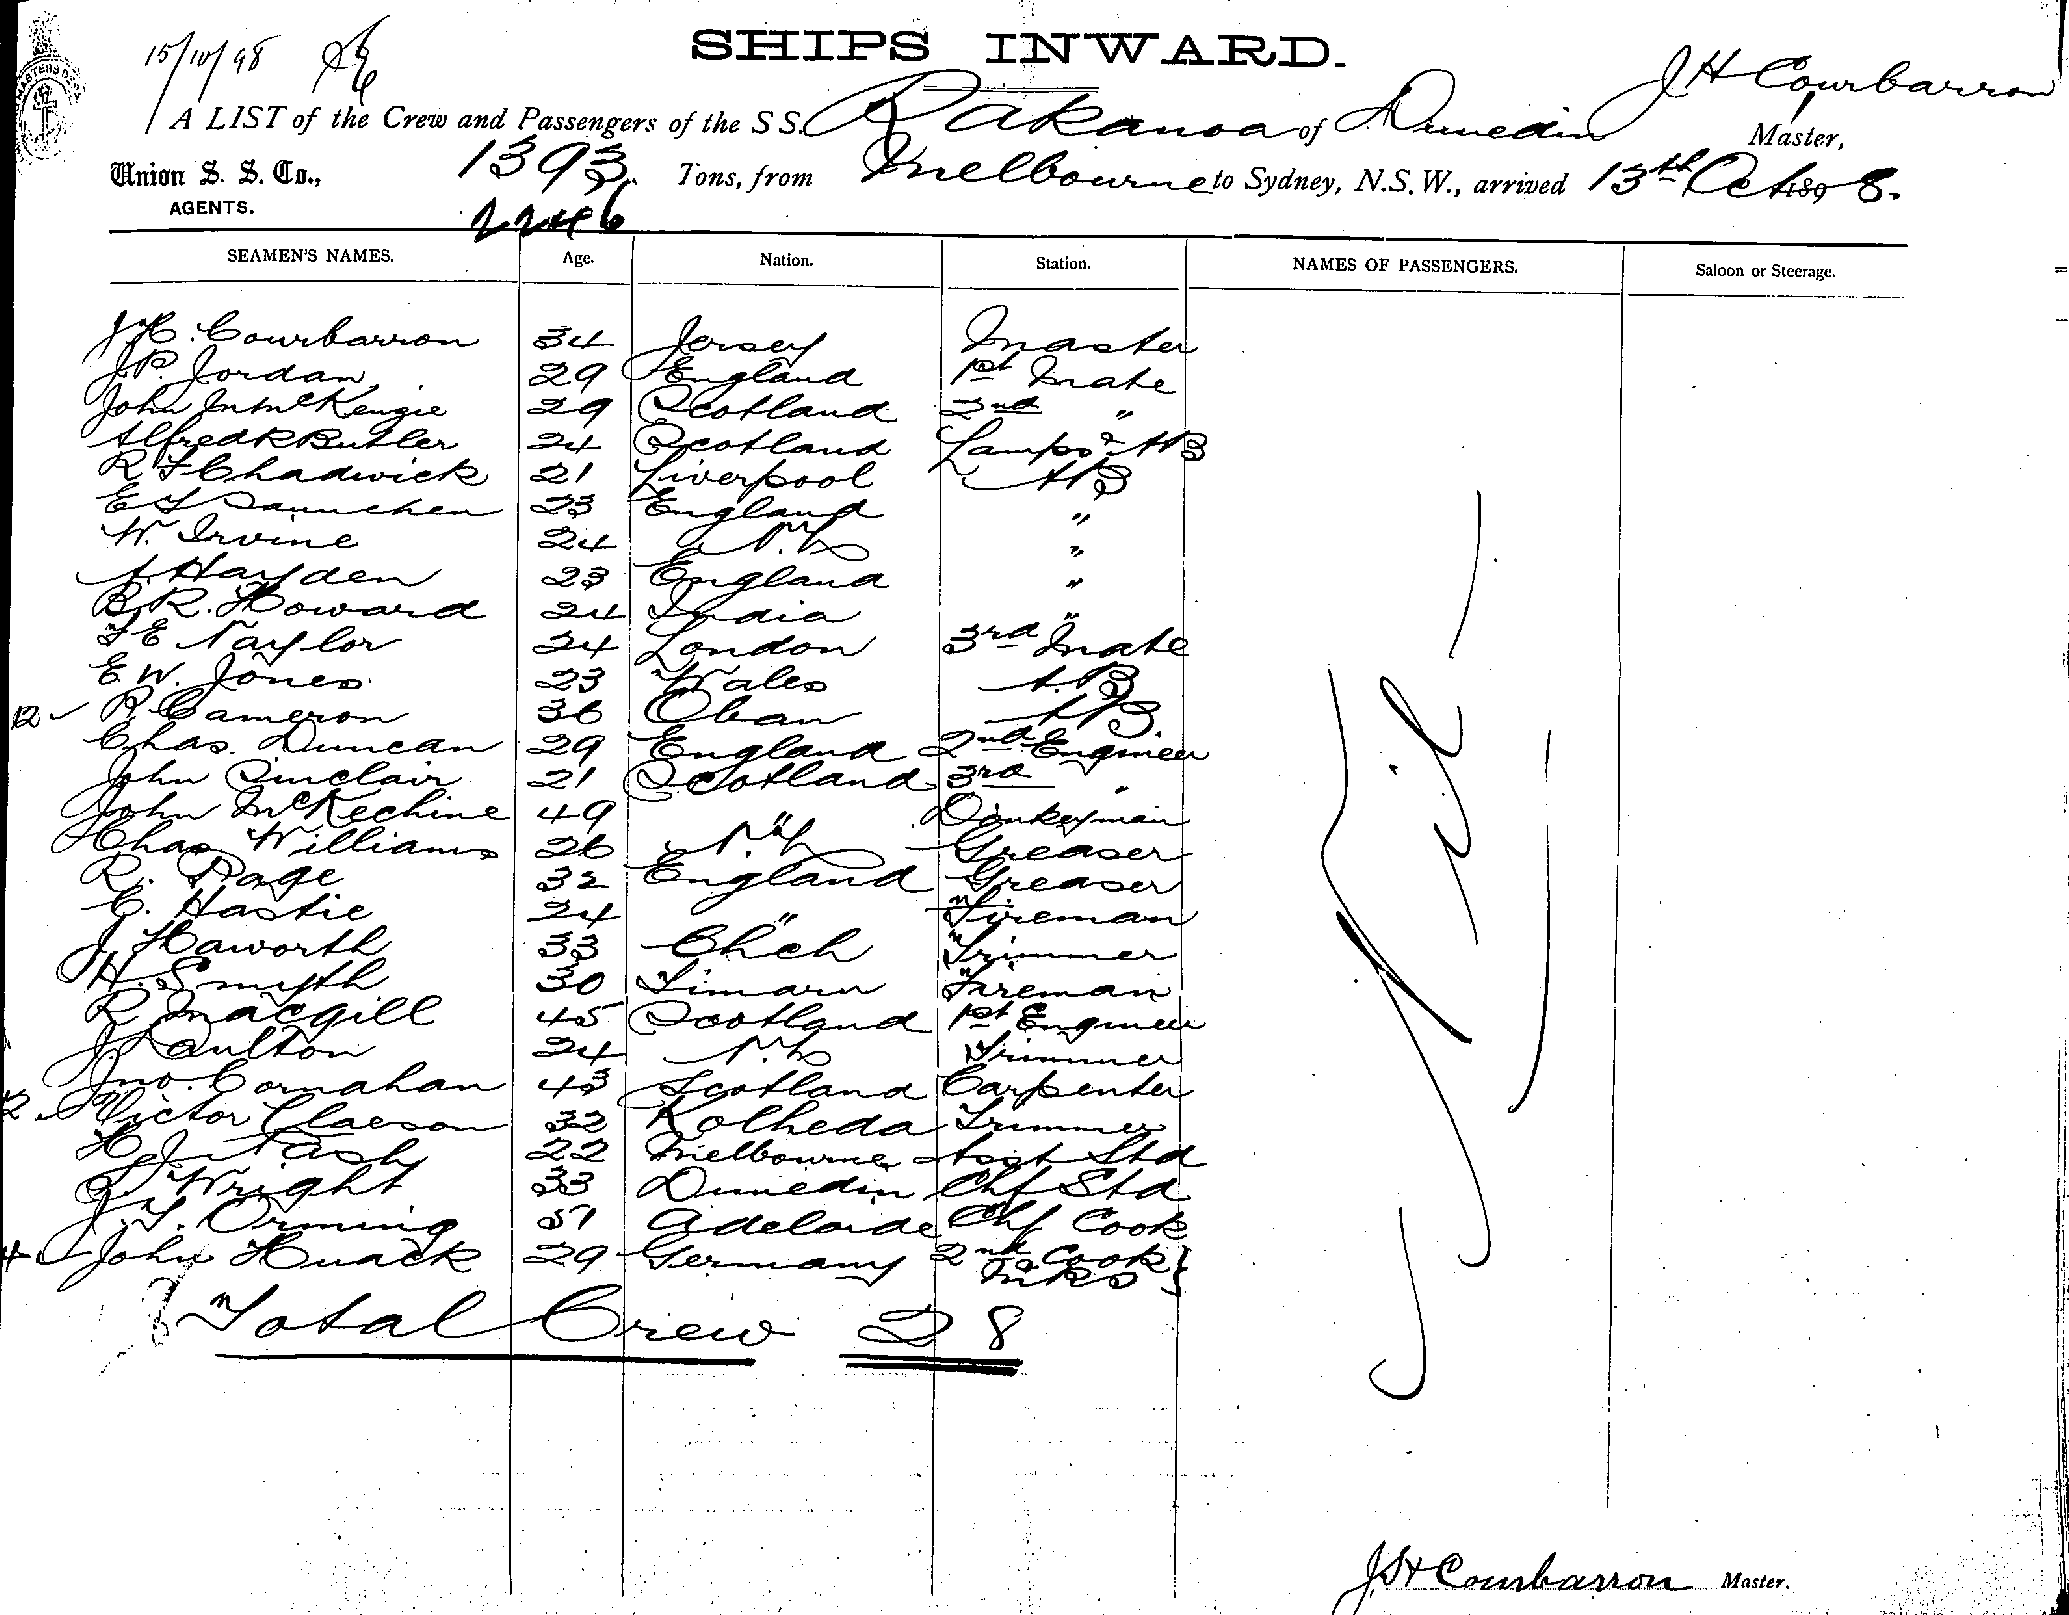 15/10/98
SHIPS INWARD.
J H Courbarron
A LIST of the Crew and Passengers of the S S. Rakanoa of Dunedin Master,
Union S. S. Co., 1393 Tons, from Melbourne to Sydney, N.S.W., arrived 13th Oct 1898.
AGENTS. 2246
SEAMEN'S NAMES. Age. Nation. Station. NAMES OF PASSENGERS. Saloon or Steerage.
J H. Courbarron 34 Jersey Master
J.P. Jordan 29 England 1st Mate
John McKenzie 29 Scotland 2nd "
Alfred R Butler 24 Scotland Lamps & AB
R F Chadwick 21 Liverpool AB
E 23 England "
W. Irvine 24 N.Z "
A. Hayden 23 England "
B.R. Howard 24 India "
F E Naylor 24 London 3rd Mate
E. W. Jones 23 Wales A.B
12 R. Cameron 36 Oban AB
Chas. Duncan 29 England 2nd Engineer
John Sinclair 21 Scotland 3rd "
John McKechine 49 " Donkeyman
Chas Williams 26 N.Z Greaser
R. Page 32 England Greaser
C. Hastie 24 " Fireman
J. Haworth 33 Chch Trimmer
H. Smyth 30 Timaru Fireman
R Macgill 45 Scotland 1st Engineer
J. Caulton 24 N.Z Trimmer
Jno. Cornahan 43 Scotland Carpenter
12 Victor Claeson 32 Kolheda Trimmer
H. J. Nash 22 Melbourne Asst Std
J. Wright 33 Dunedin Chf Std
J. T. Orming 51 Adelaide Chf Cook
4 John Huack 29 Germany 2nd Cook
Bks
Total Crew 28
Nil
J H Courbarron Master.